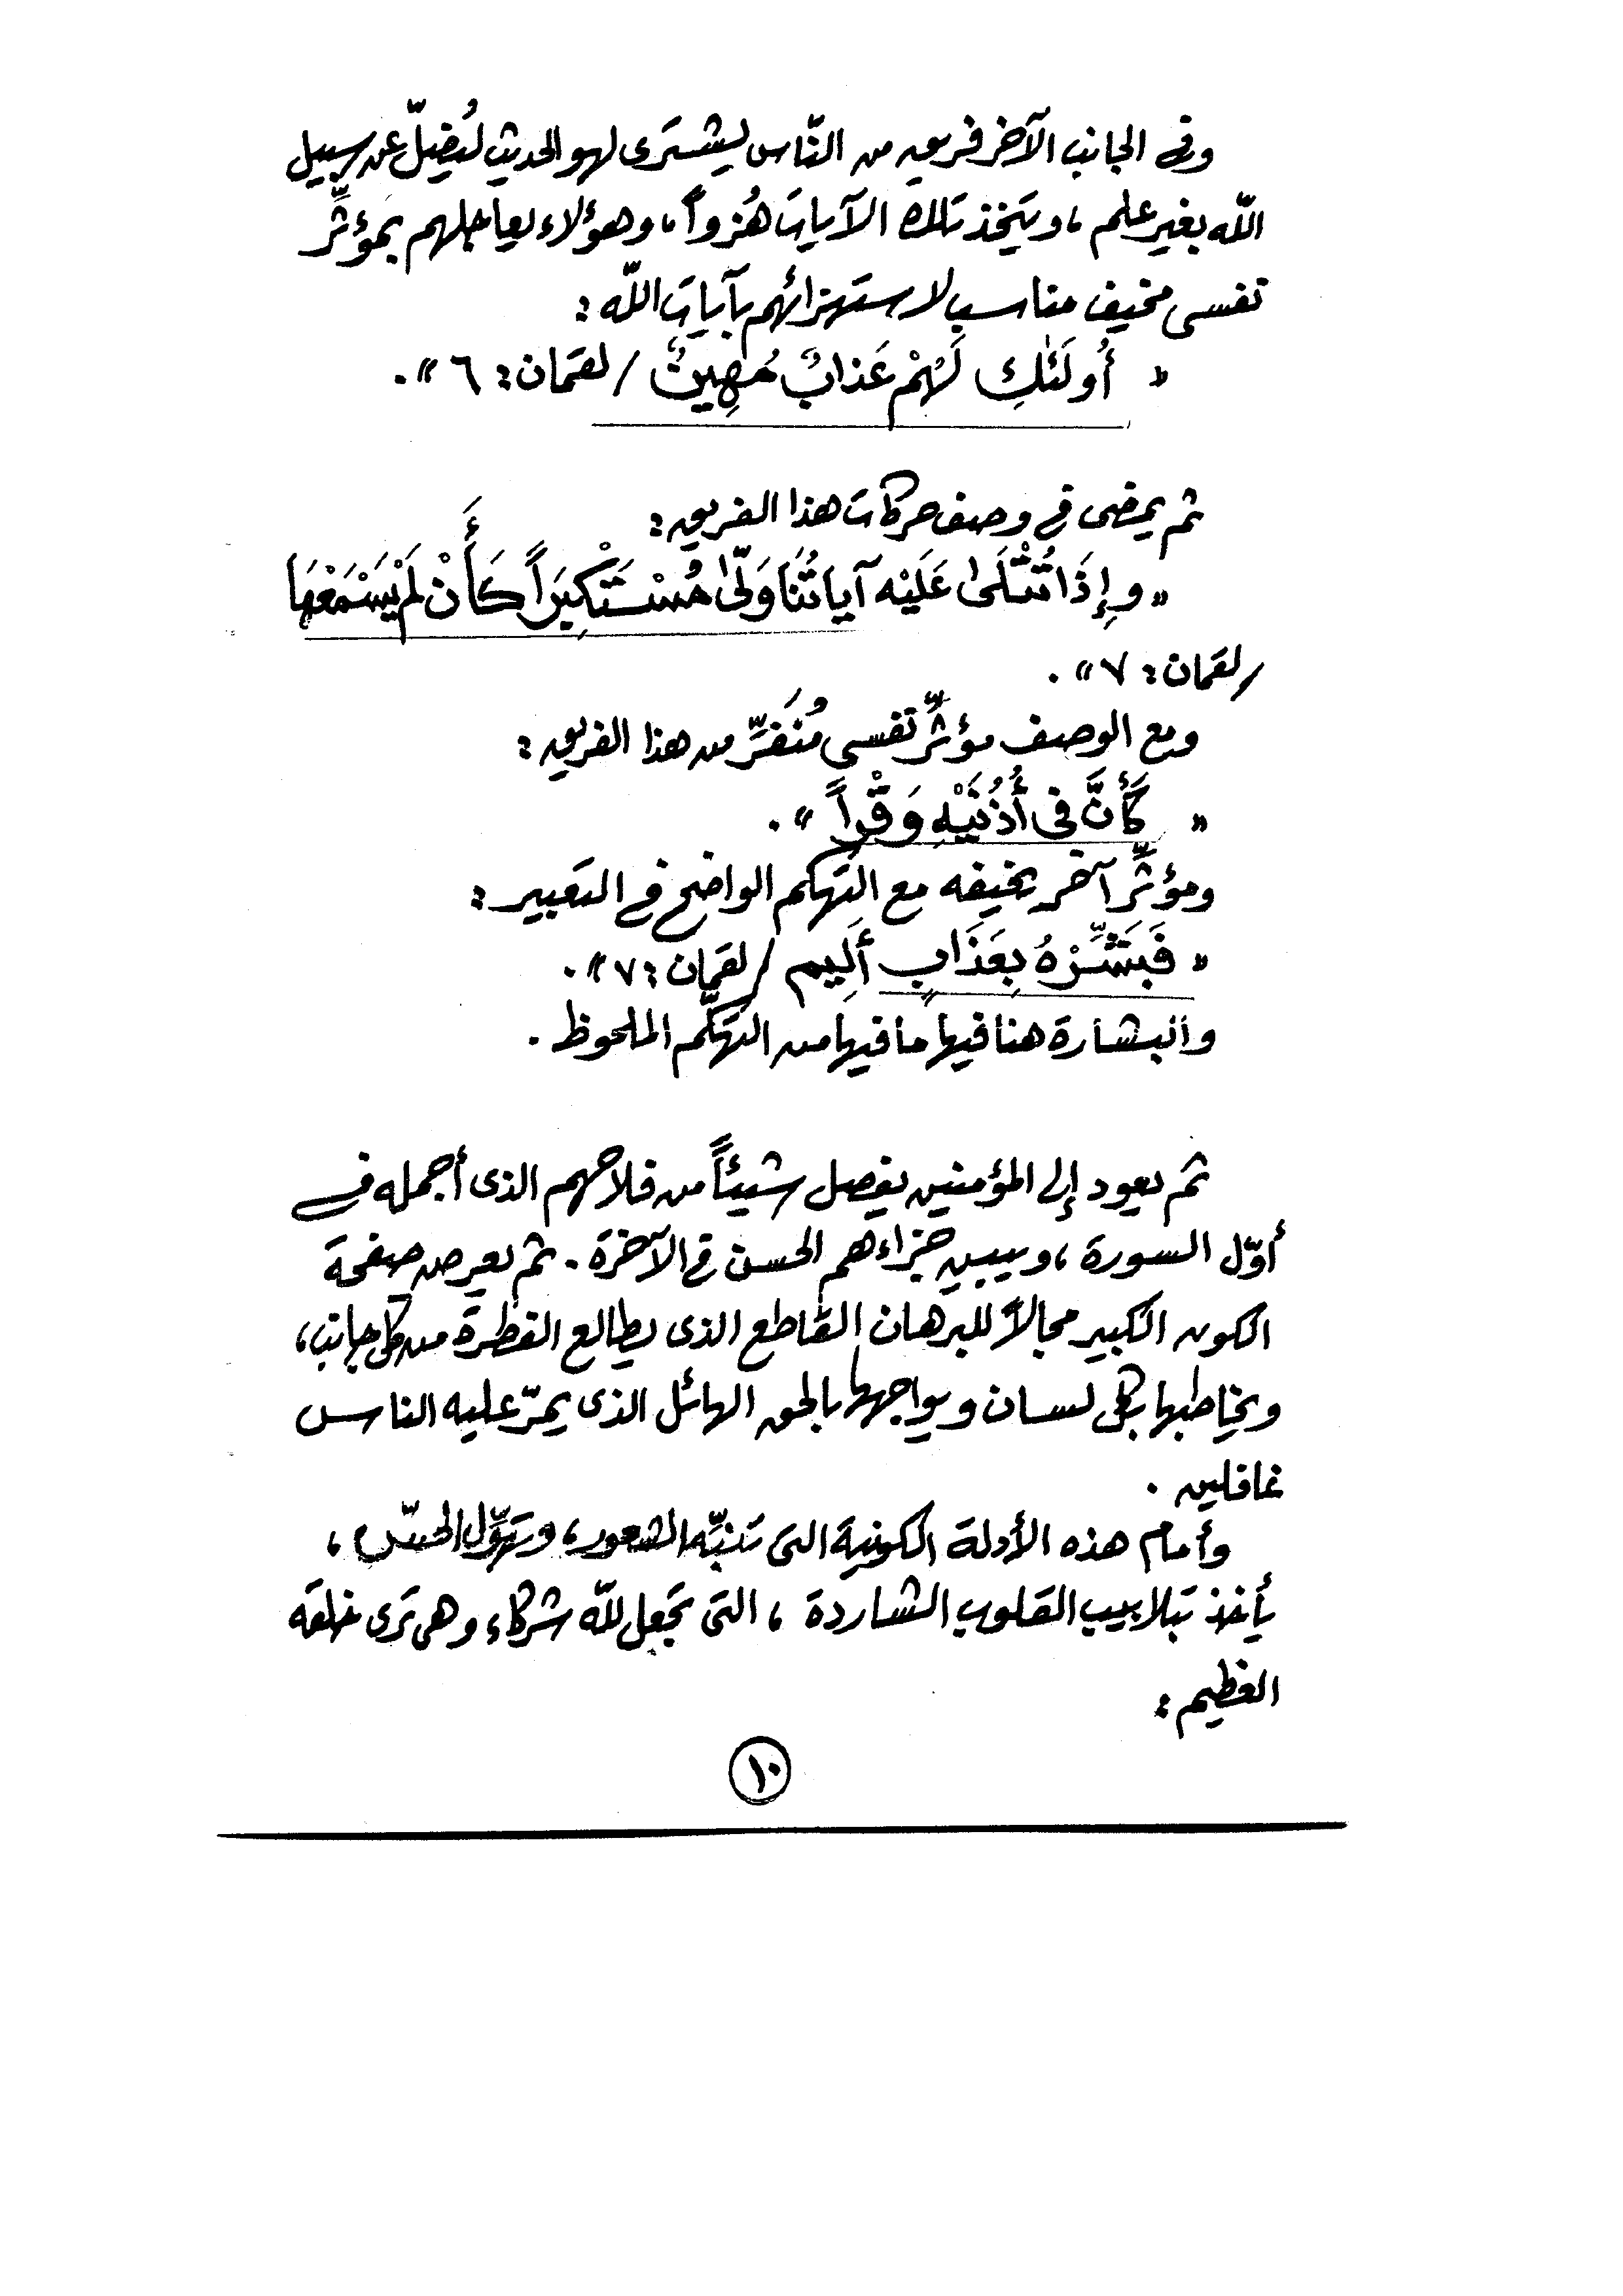 وفى الجانب الآخر فريق من النّاس يشترى لهو الحديث ليُضِلّ عن سبيل
اللّه بغير علم ، ويتخذ تلك الآيات هُزواً ، وهؤلاء يعاجلهم بمؤثِّر
نفسى مخيف مناسب لاستهزائهم بآيات اللّه :
« أُولَئِكَ لَهُمْ عَذابٌ مُهِينٌ / لقمان : ٦ » .
ثم يمضى فى وصف حركات هذا الفريق :
« وإِذَا تُتْلَىٰ عَلَيْه آياتُنَا وَلّىٰ مُسْتَكْبِرَاً كَأَنْ لَمْ يَسْمَعْهَا
/ لقمان : ٧ » .
ومع الوصف مؤثِّر نفسى مُنَفِّر من هذا الفريق :
« كَأَنَّ فى أُذُنَيْهِ وَقْراً » .
ومؤثِّر آخر يخيفه مع التهكم الواضح فى التعبير :
« فَبَشِّرْهُ بِعَذَابٍ أَلِيم / لقمان : ٧ » .
والبشارة هنا فيها ما فيها من التهكّم الملحوظ .
ثم يعود إلى المؤمنين يفصل شيئاً من فلاحهم الذى أجمله فى
أوّل السورة ، ويبين جزاءهم الحسن فى الآخرة . ثم يعرض صفحة
الكون الكبير مجالاً للبرهان القاطع الذى يطالع الفطرة من كل جانب ،
ويخاطبها بكل لسان ويواجهها بالحق الهائل الذى يمرّ عليه الناس
غافلين .
وأمام هذه الأدلة الكونية التى تنبِّه الشعور ، وتهوِّل الحسّ ،
يأخذ بتلابيب القلوب الشاردة ، التى تجعل للّه شركاء وهى ترى خلقه
العظيم :
١٠